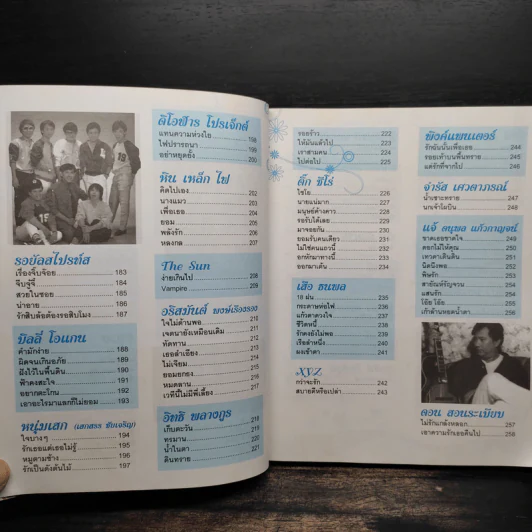 รอยัลสไปรท์ส
เรื่องจิ๊บจ้อย 183
จีบจู๋จี๋ 184
สวยในซอย 185
น่าอาย 186
รักสิบล้อต้องรอสิบโมง 187
มิลลี่ โอแกน
ดำมักง่าย 188
ผิดจนเกินอภัย 189
ฝังไว้ในพื้นดิน 190
ฟ้าคงสะใจ 191
อยากตะโกน 192
เอาอะไรมาแลกก็ไม่ยอม 193
หนุ่มเสก (เสกสรร ชัยเจริญ)
ใจบางๆ 194
รักเธอแต่เธอไม่รู้ 195
หมูตามช้าง 196
รักเป็นดั่งต้นไม้ 197
ดิโอฬาร โปรเจ็คต์
แทนความห่วงใย 198
ไฟปรารถนา 199
อย่าหยุดยั้ง 200
หิน เหล็ก ไฟ
คิดไปเอง 202
นางแมว 203
เพื่อเธอ 204
ยอม 205
พลังรัก 206
หลงกล 207
The Sun
ง่ายเกินไป 208
Vampire 209
อริสมันต์ พงษ์เรืองรอง
ใจไม่ด้านพอ
เจตนายังเหมือนเดิม
ทัดทาน
เธอลำเอียง
ไม่เจียม
ยอมยกธง
หมดลาน
เวทีนี้ไม่มีพี่เลี้ยง
อิทธิ พลางกูร
เก็บตะวัน 218
ทรมาน 219
น้ำในตา 220
ดินทราย 221
รอยร้าว 222
ให้มันแล้วไป 223
เราสามคน 224
ไปต่อไป 225
ติ๊ก ชิโร่
ใช่ใย 226
นายแน่มาก 227
มนุษย์ค้างคาว 228
รอรับได้เลย 229
มาจอยกัน 230
ยอมรับคนเดียว 231
ไม่ใช่คนแถวนี้ 232
อกหักมาทางนี้ 233
ออกมาเต้น 234
เสือ ธนพล
18 ฝน 235
กระดาษห่อไฟ 236
แก้วตาดวงใจ 237
ชีวิตหนี้ 238
รักคงยังไม่พอ 239
เรือลำหนึ่ง 240
ผงเข้าตา 241
XYZ
กว่าจะรัก 242
สบายดีหรือเปล่า 243
พิงค์แพนเตอร์
รักฉันนั้นเพื่อเธอ 244
รอยเท้าบนพื้นทราย 245
แต่รักที่จากไป 246
จำรัส เศวตาภรณ์
น้ำเซาะทราย 247
นกเจ้าโผบิน 248
แจ้ ดนุพล แก้วกาญจน์
ขาดเธอขาดใจ
ดอกไม้ให้คุณ
เทวดาเดินดิน
นิดนึงพอ
พิษรัก
สายัณห์รัญจวน
แสนรัก
โอ้ย โอ้ย
เก้าล้านหยดน้ำตา
ดอน สอนระเบียบ
ไม่รักแกล้งหลอก 257
เอาความรักเธอคืนไป 258